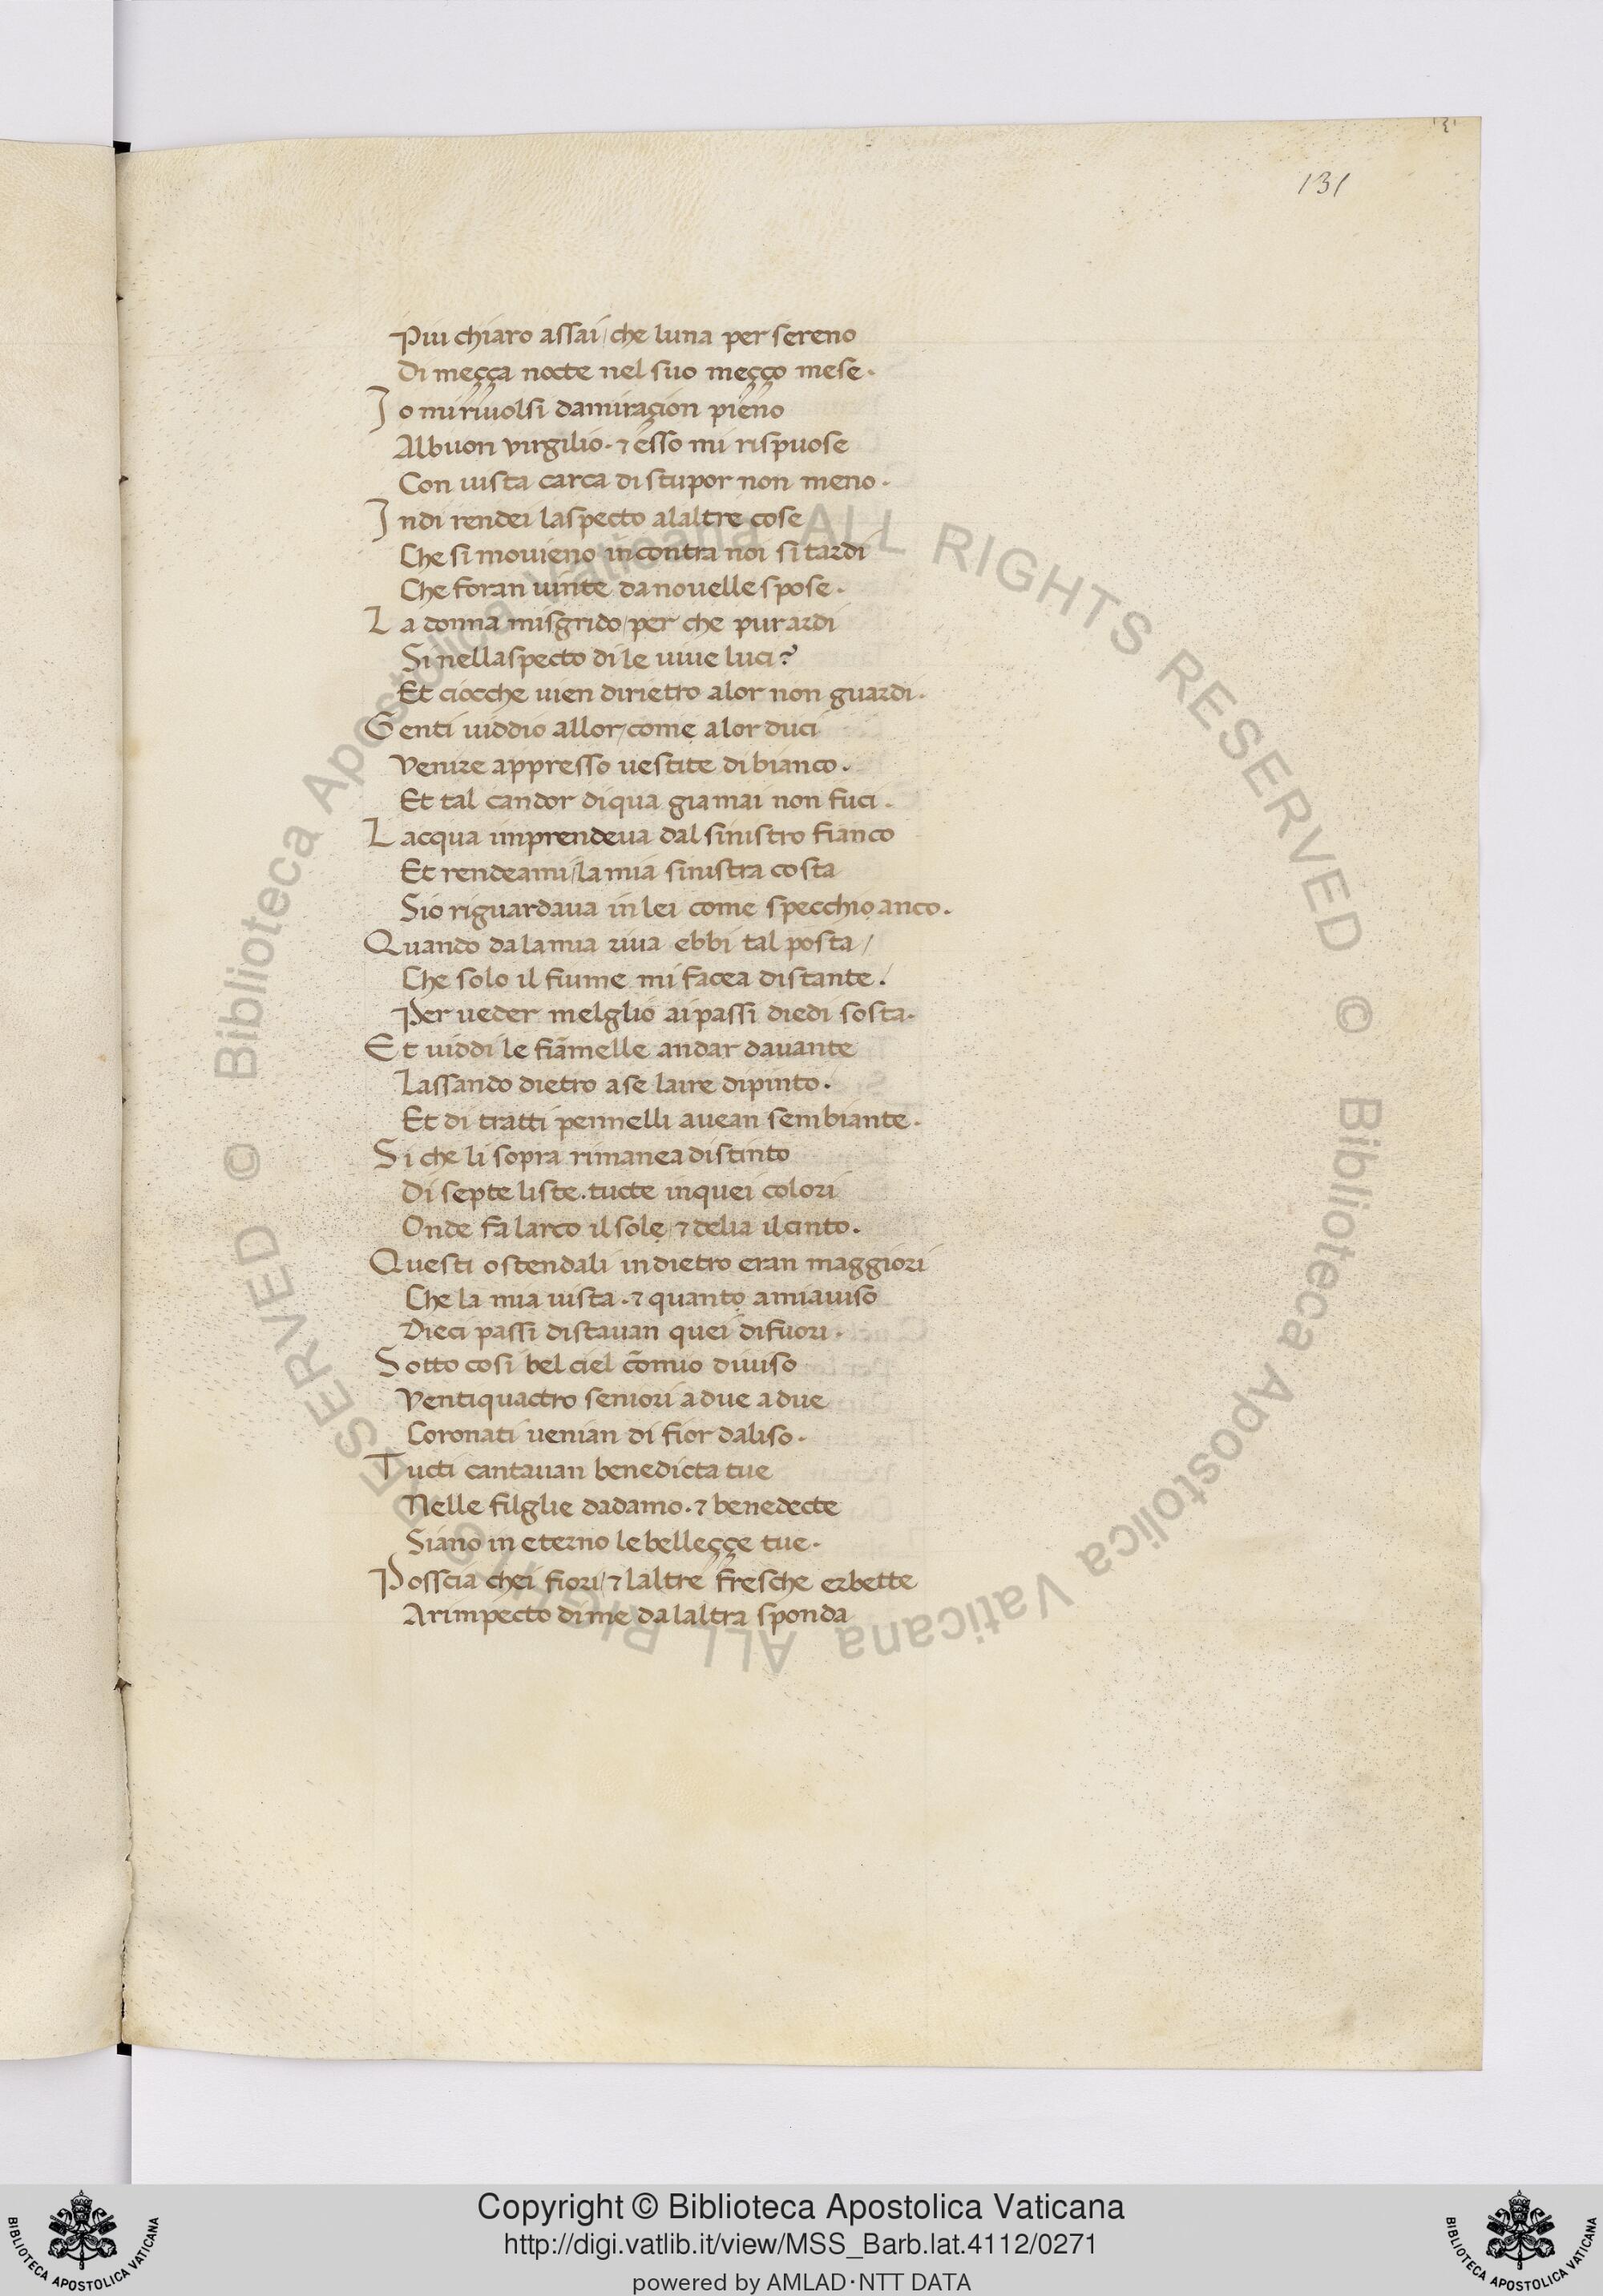 131
Piu chiaro assai/che luna per sereno
Di meçça nocte nel suo meçço mese.
Io mi riuolsi damiraçion pieno
Albuon virgilio. ⁊ esso mi rispuose
Con uista carca di stupor non meno.
Indi rendei laspecto alaltre cose
Che si mouieno incontra noi si tardi
Che foran uinte da nouelle spose.
La donna misgrido/per che pur ardi
Si nellaspecto di le uiue luci?
Et ciocche uien dirietro alor non guardi.
Genti uiddio allor/come alor duci
Venire appresso uestite di bianco.
Et tal candor diqua giamai non fuci.
Lacqua imprendeua dal sinistro fianco
Et rendeami/la mia sinistra costa
Sio riguardaua in lei come specchio anco.
Quando dalamia riua ebbi tal posta/
Che solo il fiume mi facea distante.
Per ueder melglio ai passi diedi sosta.
Et uiddi le fiãmelle andar dauante
Lassando dietro ase laire dipinto.
Et di tratti pennelli auean sembiante.
Si che li sopra rimanea distinto
Di septe liste. tucte inquei colori
Onde fa larco il sole/⁊ delia il cinto.
Questi ostendali indietro eran maggiori
Che la mia uista. ⁊ quanto amiauiso
Dieci passi distauan quei difuori.
Sotto cosi bel ciel cõmio diuiso
Ventiquactro seniori adue adue
Coronati uenian di fior daliso.
Tucti cantauan benedicta tue
Nelle filglie dadamo. ⁊ benedecte
Siano in eterno le belleççe tue.
Posscia chei fiori/⁊ laltre fresche erbette
Arimpecto di me da laltra sponda
© Biblioteca Apostolica Vaticana ALL RIGHTS RESERVED © Biblioteca Apostolica Vaticana ALL RIGHTS RESERVED
Copyright © Biblioteca Apostolica Vaticana
http://digi.vatlib.it/view/MSS_Barb.lat.4112/0271
powered by AMLAD·NTT DATA
BIBLIOTECA APOSTOLICA VATICANA
BIBLIOTECA APOSTOLICA VATICANA